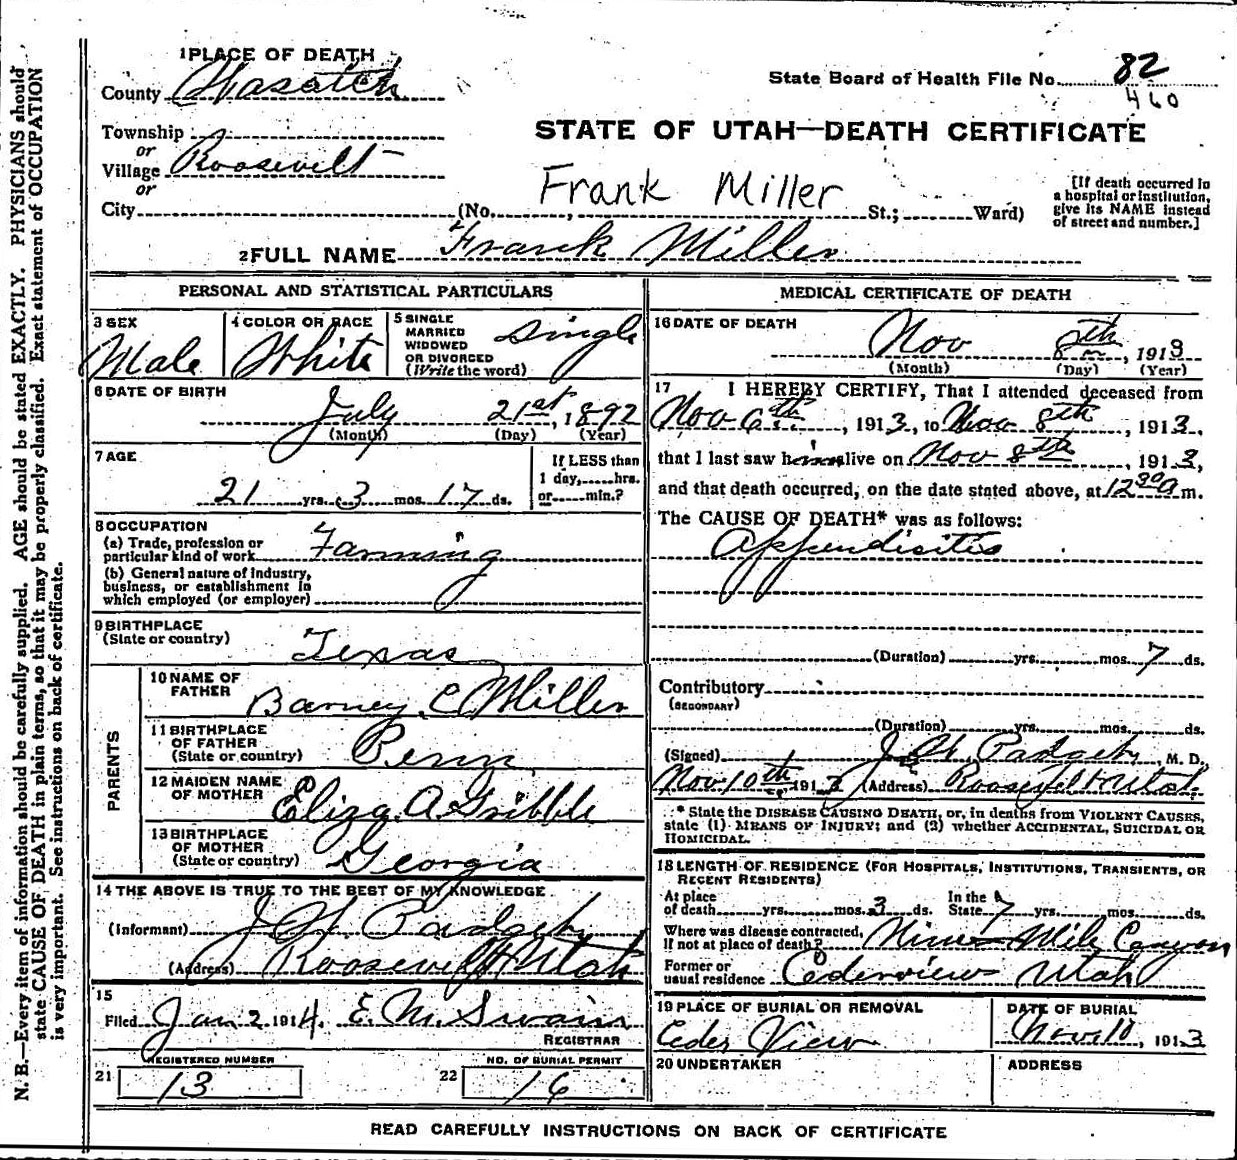 1 PLACE OF DEATH
County Wasatch
State Board of Health File No. 82
460
Township
or
Village Roosevelt
or
City (No. , St.; Ward)
STATE OF UTAH—DEATH CERTIFICATE
Frank Miller
[If death occurred in
a hospital or institution,
give its NAME instead
of street and number.]
2 FULL NAME Frank Miller
PERSONAL AND STATISTICAL PARTICULARS
3 SEX
Male
4 COLOR OR RACE
White
5 SINGLE
MARRIED
WIDOWED
OR DIVORCED
(Write the word)
Single
6 DATE OF BIRTH
July 21st, 1892
(Month) (Day) (Year)
7 AGE
21 yrs. 3 mos. 17 ds.
If LESS than
1 day, hrs.
or min.?
8 OCCUPATION
(a) Trade, profession or
particular kind of work Farming
(b) General nature of industry,
business, or establishment in
which employed (or employer)
9 BIRTHPLACE
(State or country)
Texas
PARENTS
10 NAME OF
FATHER
Barney C Miller
11 BIRTHPLACE
OF FATHER
(State or country)
12 MAIDEN NAME
OF MOTHER
Eliza A Gribble
13 BIRTHPLACE
OF MOTHER
(State or country)
Georgia
14 THE ABOVE IS TRUE TO THE BEST OF MY KNOWLEDGE
(Informant)
(Address) Roosevelt Utah
15
Filed Jan 2 1914. E. M. Swain
REGISTRAR
REGISTERED NUMBER
21 13
NO. OF BURIAL PERMIT
22 16
MEDICAL CERTIFICATE OF DEATH
16 DATE OF DEATH
Nov 8th, 1913
(Month) (Day) (Year)
17 I HEREBY CERTIFY, That I attended deceased from
Nov 6th, 1913, to Nov 8th, 1913,
that I last saw him alive on Nov 8th, 1913,
and that death occurred, on the date stated above, at 12 30 a m.
The CAUSE OF DEATH* was as follows:
Appendisites
(Duration) yrs. mos. 7 ds.
Contributory
(SECONDARY)
(Duration) yrs. mos. ds.
(Signed) , M. D.,
Nov 10th 1913 (Address) Roosevelt Utah.
* State the DISEASE CAUSING DEATH, or, in deaths from VIOLENT CAUSES,
state (1) MEANS OF INJURY; and (2) whether ACCIDENTAL, SUICIDAL OR
HOMICIDAL.
18 LENGTH OF RESIDENCE (FOR HOSPITALS, INSTITUTIONS, TRANSIENTS, OR
RECENT RESIDENTS)
At place
of death yrs. mos. 3 ds.
In the
State 7 yrs. mos. ds.
Where was disease contracted,
If not at place of death? Nine Mile Canyon
Former or
usual residence Cedarview Utah
19 PLACE OF BURIAL OR REMOVAL
Ceder View
DATE OF BURIAL
Nov. 10, 1913
20 UNDERTAKER
ADDRESS
READ CAREFULLY INSTRUCTIONS ON BACK OF CERTIFICATE
N. B.—Every item of information should be carefully supplied. AGE should be stated EXACTLY. PHYSICIANS should
state CAUSE OF DEATH in plain terms, so that it may be properly classified. Exact statement of OCCUPATION
is very important. See instructions on back of certificate.